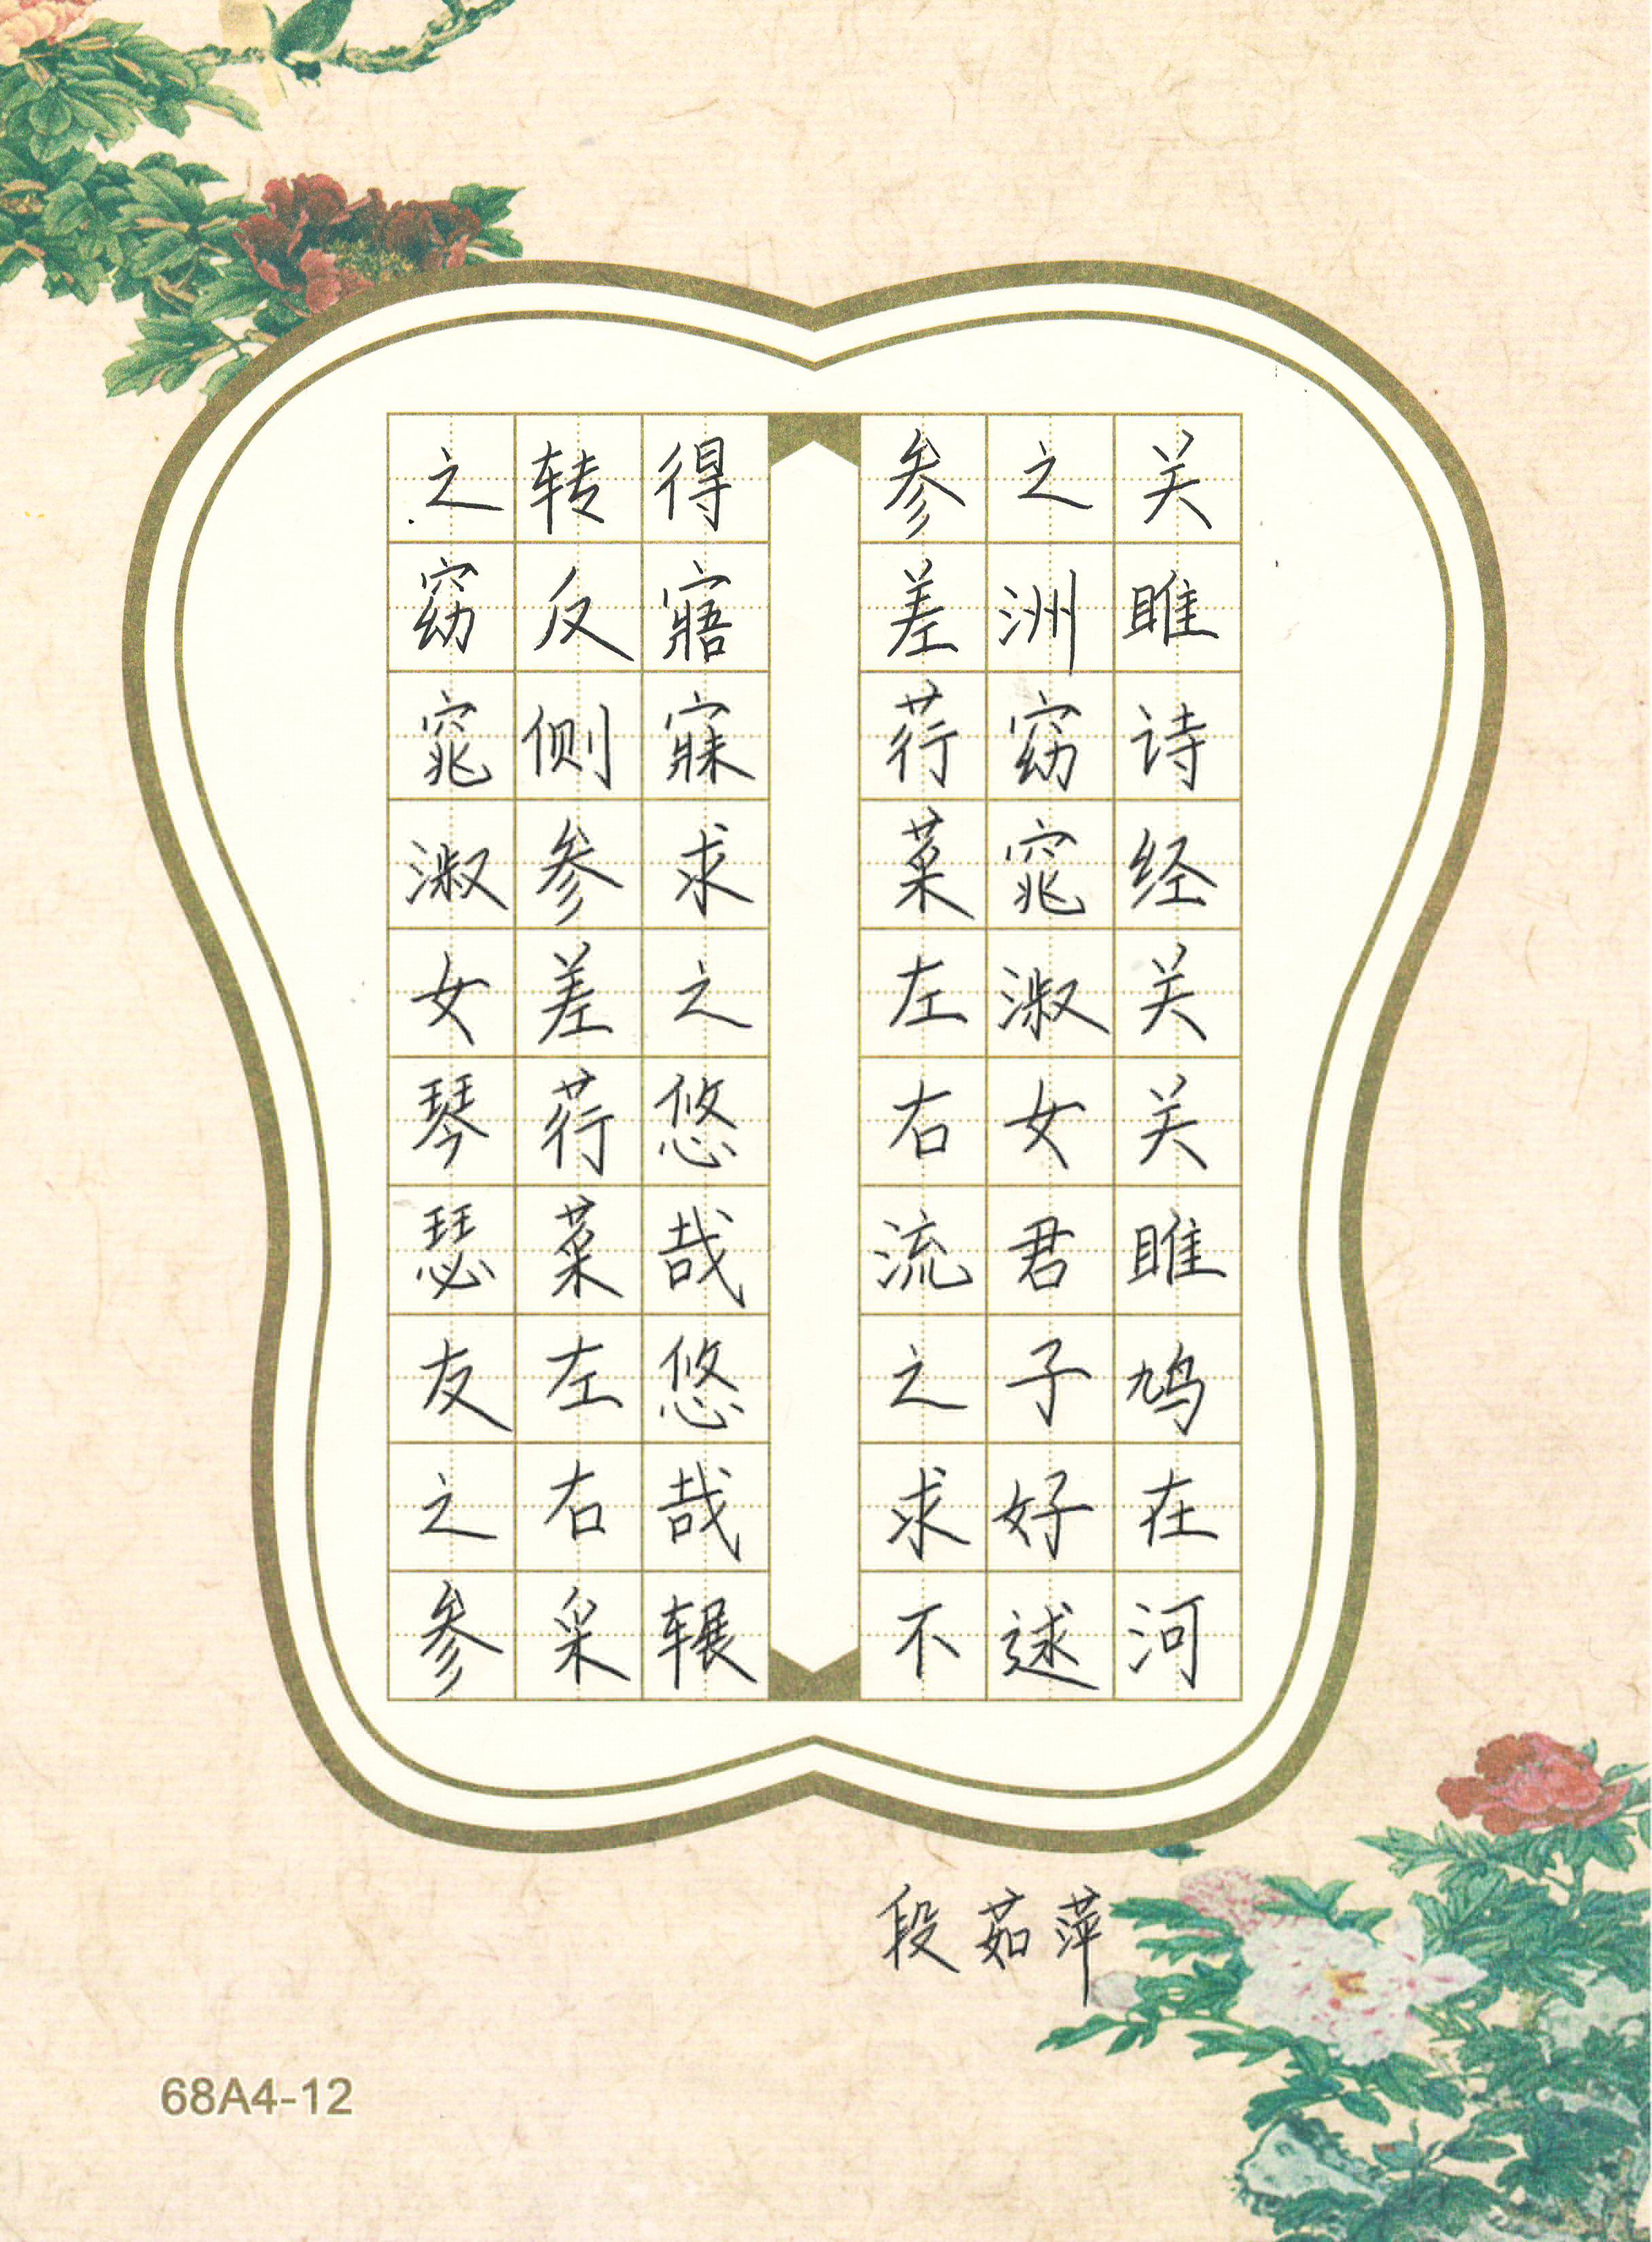 关雎诗经关关雎鸠在河
之洲窈窕淑女君子好逑
参差荇菜左右流之求不
得寤寐求之悠哉悠哉辗
转反侧参差荇菜左右采
之窈窕淑女琴瑟友之参
段茹萍
68A4-12